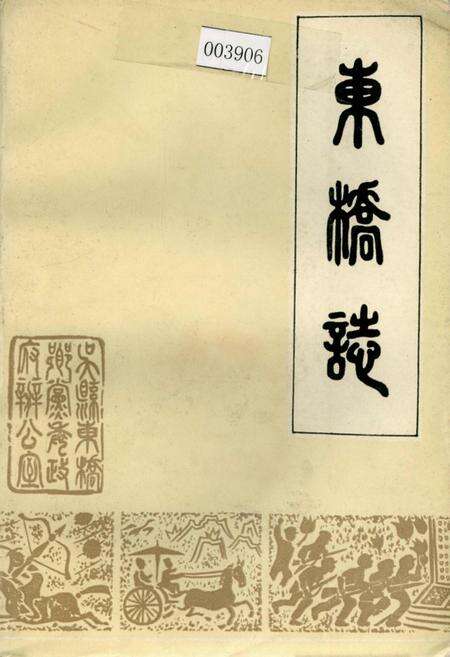 003906
東橋誌
吳縣東橋
鄉黨委政
府辦公室